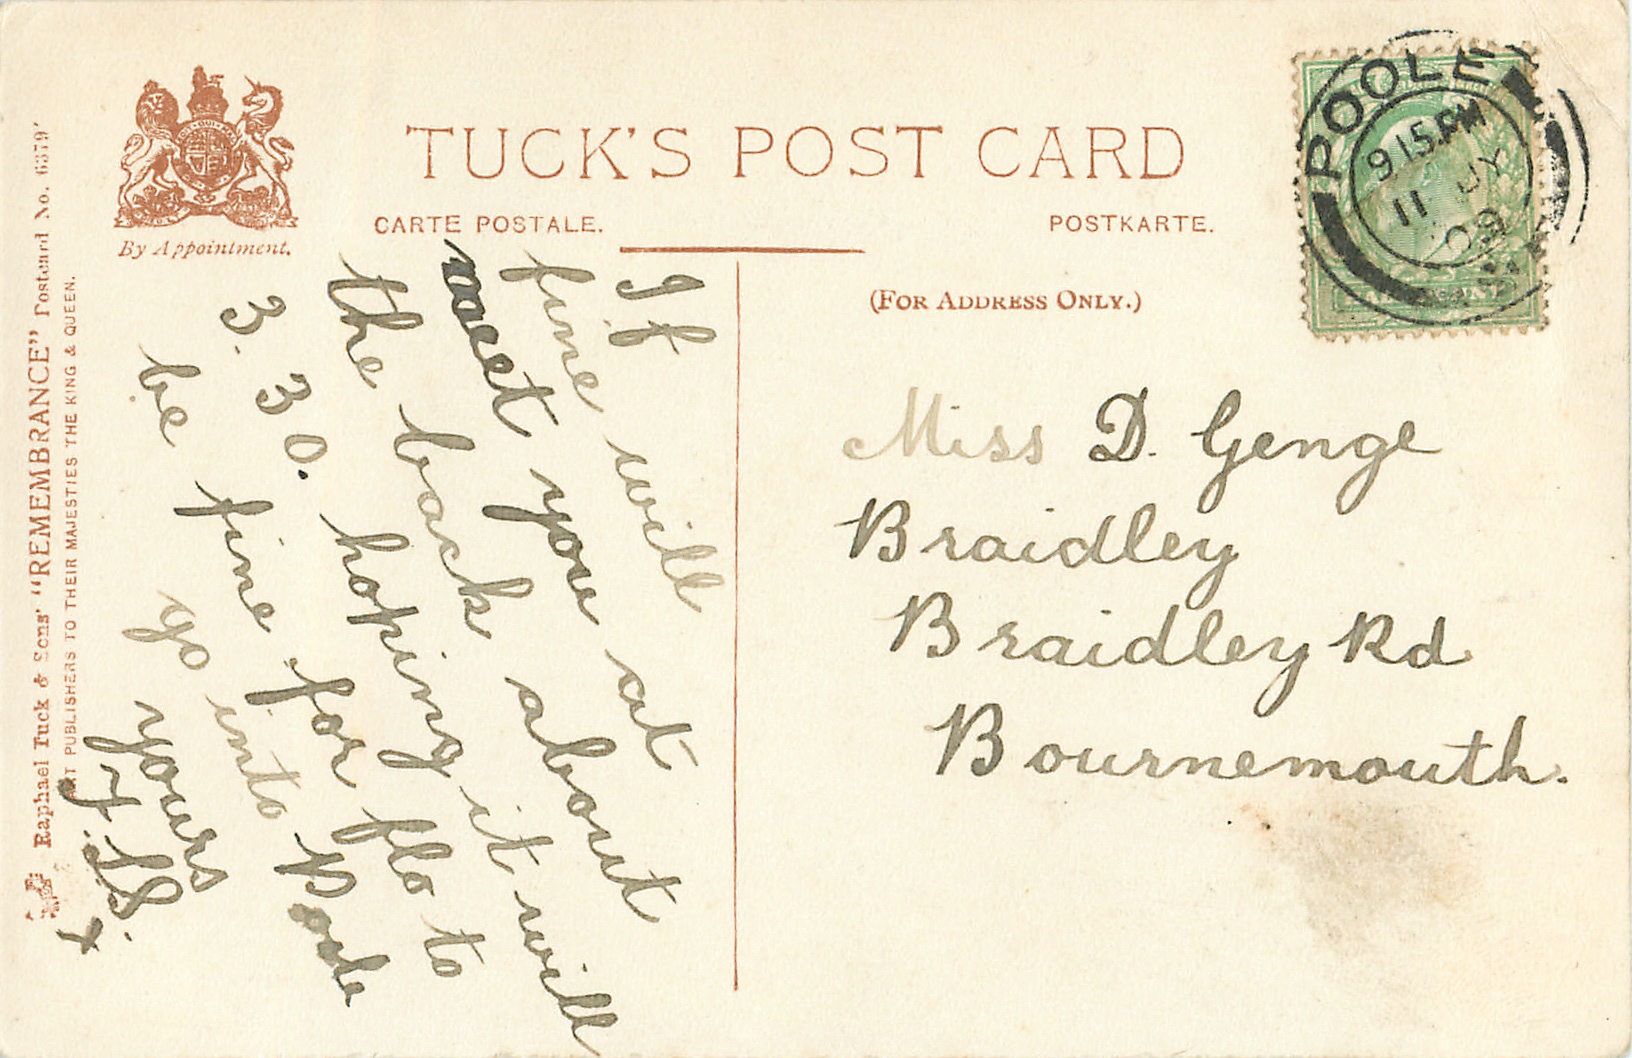 TUCK'S POST CARD
CARTE POSTALE.
POSTKARTE.
(FOR ADDRESS ONLY.)
By Appointment.
Raphael Tuck & Sons' "REMEMBRANCE" Postcard No. 6379'
ART PUBLISHERS TO THEIR MAJESTIES THE KING & QUEEN.
POOLE
9 15.PM
11 JY
09
If
fine will
meet you at
the back about
3. 30. hoping it will
be fine for flo to
go into Poole
yours
x
Miss D. Genge
Braidley
Braidley Rd
Bournemouth.